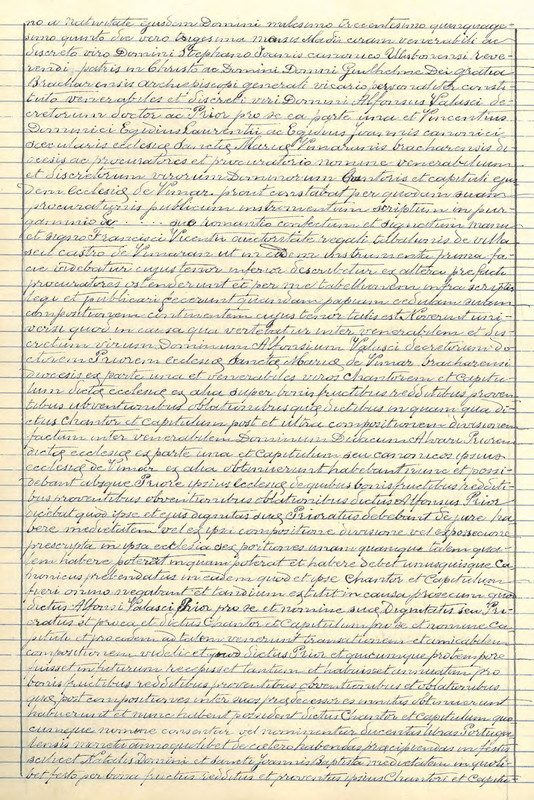 no a nativitate ejusdem Domini milesimo trecentesimo quinquage-
simo quinto die vero vigesima mense Madii coram venerabili ac
discreto viro Domini Stephano Joanis canonico Ulixbonensi reve-
rendi patris in Christo ac Domini Domni Guilhelme Dei gratia
Bracharensis archiepiscopi generali vicario personaliter consti-
tuto venerabiles et discreti viri Domini Alfonsus Valasci de-
cretorum doctor ac Prior pro se ea parte una et Vincentius
Dominici Egidius Laurentii ac Egidius Joannis canonici
sæcularis ecclesiæ Sanctæ Mariæ Vimarunis bracharensis di-
ocesis ac procuratores et procuratorio nomine venerabilium
et discretorum virorum Dominorum Cantoris et capituli ejus
dem Ecclesiæ de Vimar prout constabat per quorum suam
procurationis publicum instrumentum scriptum in pur
gaminio de ..... suo romantio confectum et signotum manu
et signo Francisci Vicenti auctoritate regali tabalionis de villa
seu castro de Vimaran ut in eadem instrumenti prima fa-
cie videbatur cujus tenor inferior describetur ex altera prefati
procuratores ostenderunt et per me tabellionem infra scriptus
legi et publicari fecerunt quandam papiream cedulam sulam
compositionem continentem cujus tenor talis est Noverint uni-
versi quod in causa qua vertebatur inter venerabilem et dis
cretum virum Dominum Alfonsium Valasci Decretorum do
ctorem Priorem ecclesiæ Sanctæ Mariæ de Vimar bracharensi
diocesis ex parte una et venerabiles viros Chantorem et Capitu
lum dictæ ecclesiæ ex alia super bonis fructibus redditibus proven
tibus obventionibus oblationibus quæ dictibus in quam qua di
ctus Chantor et Capitulum post et ultra compositionem divisionem
factam inter venerabilem Dominum Didacum Alvari Priorem
dictæ ecclesiæ ex parte una et Capitulum seu canonicos ipsius
ecclesiæ de Vimar ex alia obtinuerunt habebant nunc et possi-
debant absque Priore ipsius ecclesiæ de quibus bonis fructibus redditi-
bus proventibus obventionibus oblationibus dictus Alfonsus Prior
dicebat quod ipse et ejus dignitas suæ Prioratus debebant de jure ha
bere medietatem vel ex ipsi compositione divisione vel expossecione
prescripta in ipsa ecclesia sex portiones unam quamque talem qua-
lem habere poterat in quem poterat et habere debet unusquisque Ca
nonicus prebendatus in eadem quod et ipse Chantor et Capitulum
fieri omino negabant et tandium extitit in causa processum quod
dictus Alfonsi Valasci Prior pro se et nomine suæ Dignitatis seu Pri-
oratus et pro ea et dictus Chantor et Capitulum pro se et nomine Ca
pituli et pro eodem ad talem venerunt transationem et amicabilem
compositionem videlicet quod dictus Prior et quicumque pro tempore
fuisset in futurum recepisset tantem et habuisset annuatim pro
bonis fructibus redditibus proventibus obventionibus et oblationibus
quæ post compositiones inter suos prædecessores innitas obtinuerunt
habuerunt et nunc habent possedent dictus Chantor et capitulum quo
cumque nomine consentur vel nominentur ducentis libras Portuga
lensis moneta anno quolibet de cetero habendas præcipiendas in festis
scilicet Natalis Domini et Sancti Joannis Baptista medietatem in quoli-
bet festo per bona fructus redditus et proventus ipsius Chantoris et Capitu-